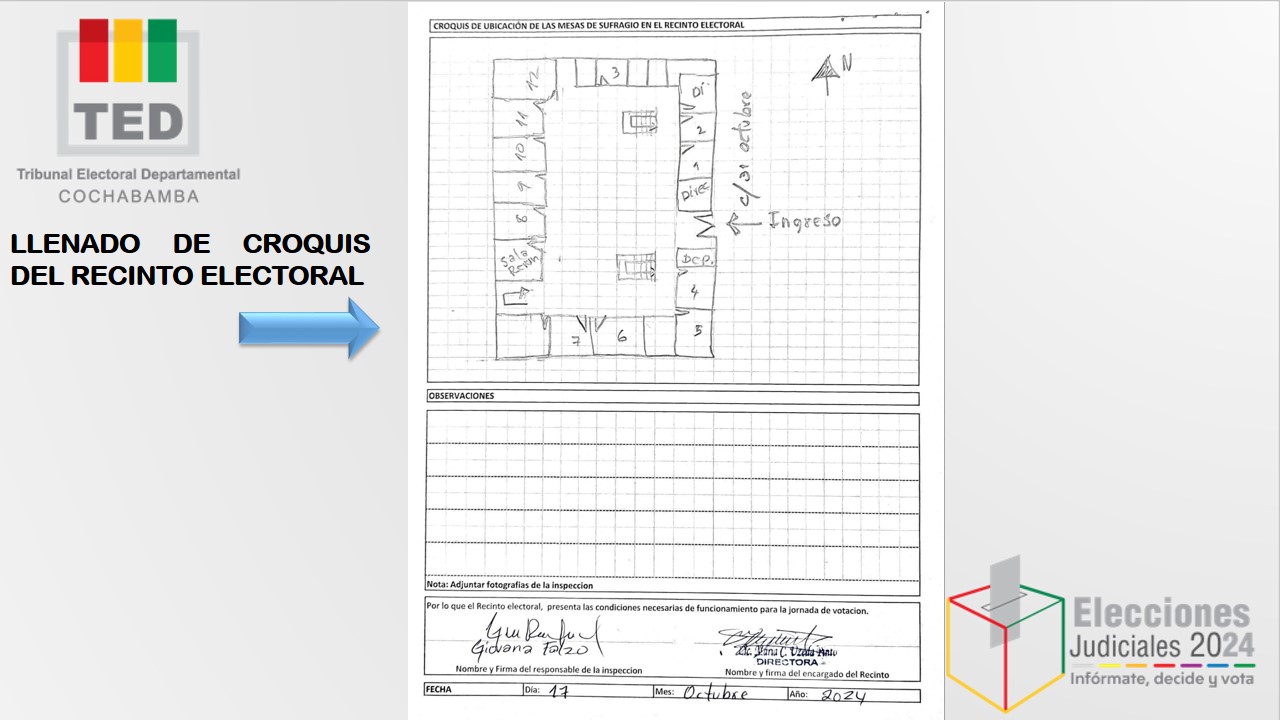 TED
Tribunal Electoral Departamental
COCHABAMBA
LLENADO DE CROQUIS
DEL RECINTO ELECTORAL
CROQUIS DE UBICACIÓN DE LAS MESAS DE SUFRAGIO EN EL RECINTO ELECTORAL
N
12
3
Di
11
2
10
1
9
Direc
c/31 octubre
8
Ingreso
Sala
Dep.
4
5
7
6
OBSERVACIONES
Nota: Adjuntar fotografias de la inspeccion
Por lo que el Recinto electoral, presenta las condiciones necesarias de funcionamiento para la jornada de votacion.
Giovana
DIRECTORA
Nombre y Firma del responsable de la inspección
Nombre y firma del encargado del Recinto
FECHA Día: 17 Mes: Octubre Año: 2024
Elecciones
Judiciales 2024
Infórmate, decide y vota